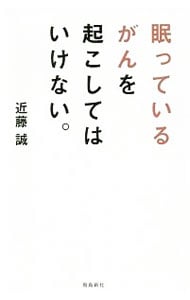 眠っている
がんを
起こしては
いけない。
近藤 誠
飛鳥新社